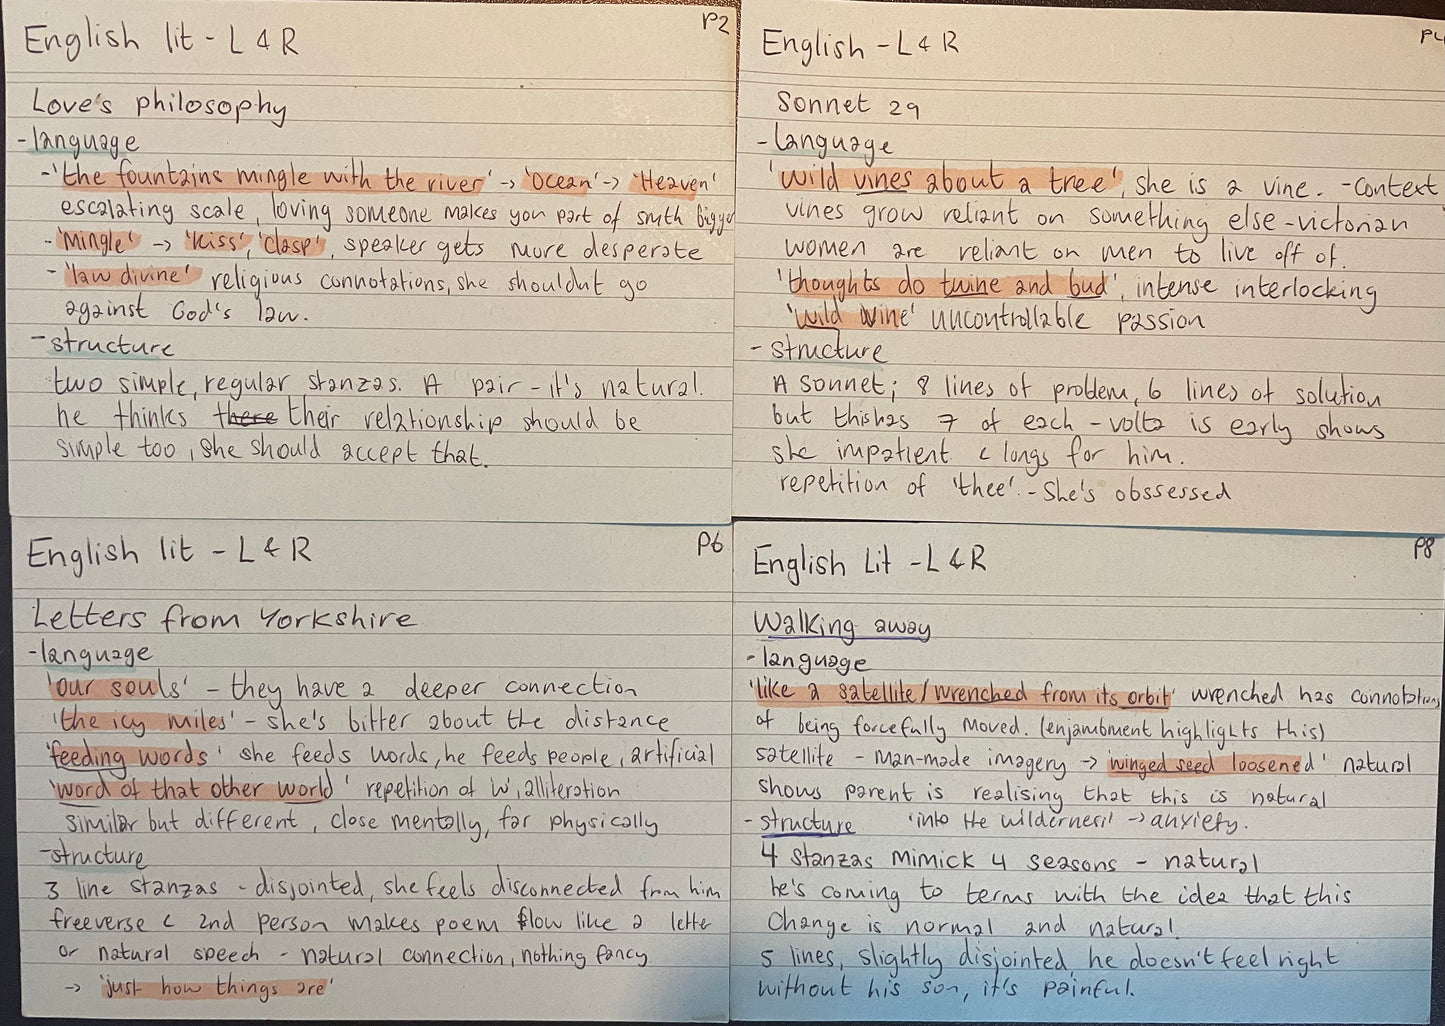 English lit - L & R
P2
Love's philosophy
- language
- 'the fountains mingle with the river' -> 'ocean' -> 'Heaven'
escalating scale, loving someone makes you part of smth bigger
- 'Mingle' -> 'kiss', 'clasp', speaker gets more desperate
- 'law divine' religious connotations, she shouldnt go
against God's law.
- structure
two simple, regular stanzas. A pair - it's natural.
he thinks there their relationship should be
simple too, she should accept that.
English - L & R
P4
Sonnet 29
- language
'wild vines about a tree', she is a vine. - context
vines grow reliant on something else - victorian
women are reliant on men to live off of.
'thoughts do twine and bud', intense interlocking
'wild vine' uncontrollable passion
- structure
A sonnet; 8 lines of problem, 6 lines of solution
but this has 7 of each - volta is early shows
she impatient & longs for him.
repetition of 'thee'. - She's obssessed
English lit - L & R
P6
Letters from Yorkshire
- language
'our souls' - they have a deeper connection
'the icy miles' - she's bitter about the distance
'feeding words' she feeds words, he feeds people, artificial
'word of that other world' repetition of 'w', alliteration
similar but different, close mentally, far physically
- structure
3 line stanzas - disjointed, she feels disconnected from him
freeverse & 2nd person makes poem flow like a letter
or natural speech - natural connection, nothing fancy
-> 'just how things are'
English Lit - L & R
P8
Walking away
- language
'like a satellite/wrenched from its orbit' wrenched has connotations
of being forcefully moved. (enjambment highlights this)
satellite - man-made imagery -> 'winged seed loosened' natural
shows parent is realising that this is natural
- structure 'into the wilderness' -> anxiety.
4 stanzas mimick 4 seasons - natural
he's coming to terms with the idea that this
change is normal and natural.
5 lines, slightly disjointed, he doesn't feel right
without his son, it's painful.